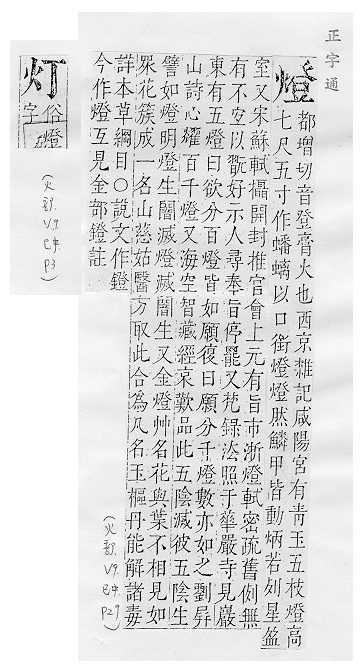 正字通
燈
都增切音登膏火也西京雜記咸陽宮有靑玉五枝燈高
七尺五寸作蟠螭以口銜燈燈然鱗甲皆動炳若列星盈
室又宋蘇軾攝開封推官會上元有旨市浙燈軾密疏舊例無
有不安以翫好示人尋奉旨停罷又梵錄法照于華嚴寺見巖
東有五燈曰欲分百燈皆如願復曰願分千燈數亦如之劉屛
山詩心耀百千燈又海空智藏經哀歎品此五陰滅彼五陰生
譬如燈明燈生闇滅燈滅闇生又金燈艸名花與葉不相見如
眾花簇成一名山慈姑醫方取此合為丸名玉樞丹能解諸毒
詳本草綱目○說文作鐙
今作燈互見金部鐙註
(火部. V.9. 巳中. P29)
灯
俗燈
字
(火部. V.9. 巳中. P3)